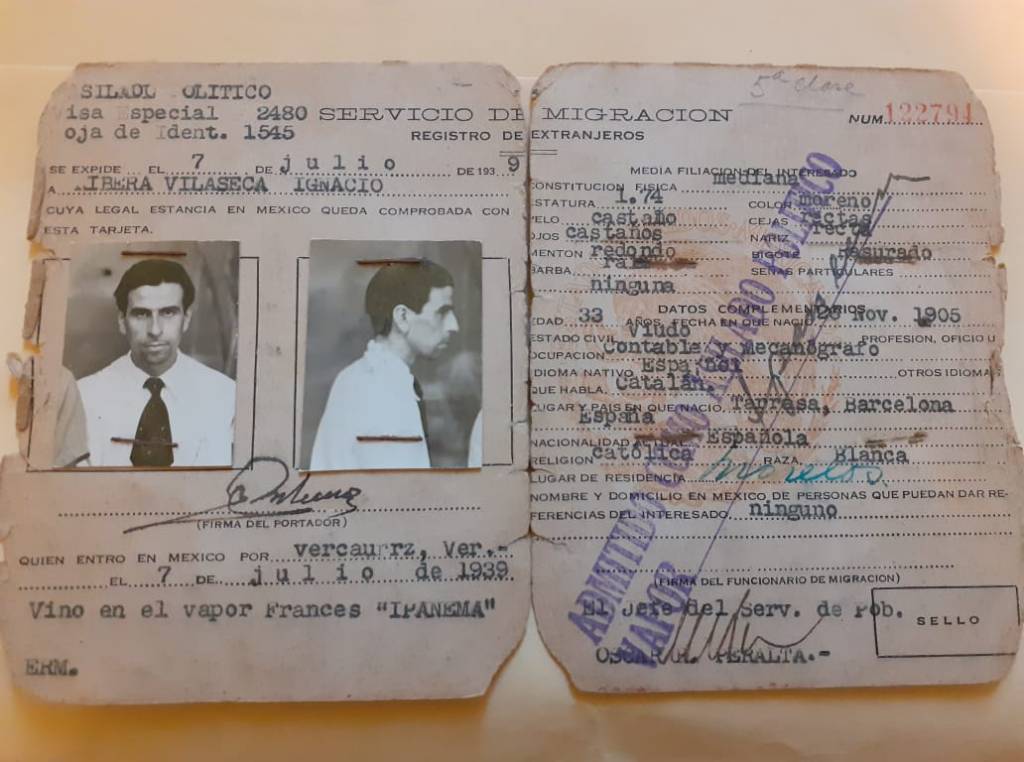 SILADO OLITICO
isa special 2480 SERVICIO DE MIGRACION
oja de Ident. 1545 REGISTRO DE EXTRANJEROS
SE EXPIDE EL 7 DE julio DE 193 9
A IBERA VILASECA IGNACIO
CUYA LEGAL ESTANCIA EN MEXICO QUEDA COMPROBADA CON
ESTA TARJETA.
(FIRMA DEL PORTADOR)
QUIEN ENTRO EN MEXICO POR vercaurrz, Ver.-
EL 7 DE julio de 1939
Vino en el vapor Frances "IPANEMA"
ERM.
5ª clase
NUM 122794
MEDIA FILIACION DEL INTERESADO
CONSTITUCION FISICA mediana
STATURA 1.74 COLOR moreno
ELO castaño CEJAS rectas
OJOS castaños NARIZ recta
MENTON redondo BIGOTE rasurado
BARBA SEÑAS PARTICULARES
ninguna
DATOS COMPLEMENTARIOS
EDAD 33 AÑOS. FECHA EN QUE NACIO 26 Nov. 1905
ESTADO CIVIL Viudo PROFESION, OFICIO U
OCUPACION Contable y Mecanógrafo
IDIOMA NATIVO Español OTROS IDIOMAS
QUE HABLA Catalán.
LUGAR Y PAIS EN QUE NACIO Tarrasa, Barcelona
España
NACIONALIDAD ACTUAL Española
RELIGION católica RAZA Blanca
LUGAR DE RESIDENCIA Morelos.
NOMBRE Y DOMICILIO EN MEXICO DE PERSONAS QUE PUEDAN DAR RE-
FERENCIAS DEL INTERESADO ninguno
(FIRMA DEL FUNCIONARIO DE MIGRACION)
El Jefe del Serv. de Pob.
SELLO
OSCAR R. PERALTA.-
ADMITIDO COMO ASILADO POLITICO
VAPOR